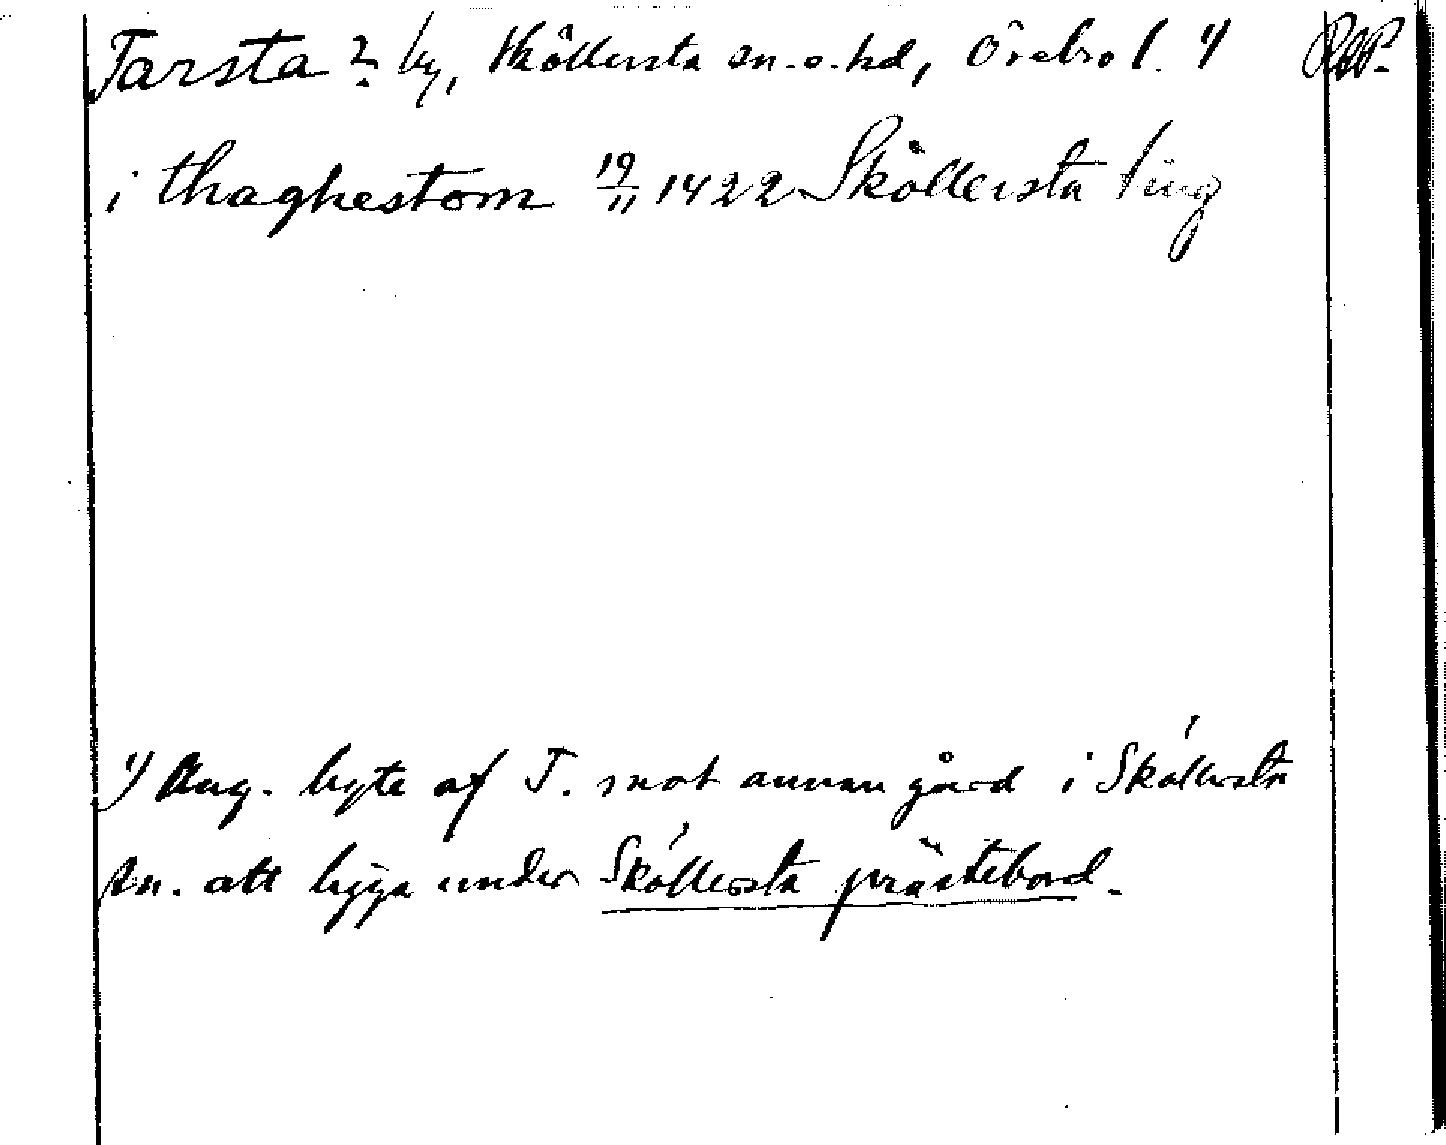 Tarsta ? by, Sköllersta sn. o. hd, Örebro l. 1) RAP.
i thaghestom 19/11 1422 Sköllersta ting
1) Ang. byte af T. mot annan gård i Sköllersta
sn. att ligga under Sköllersta prästebord.